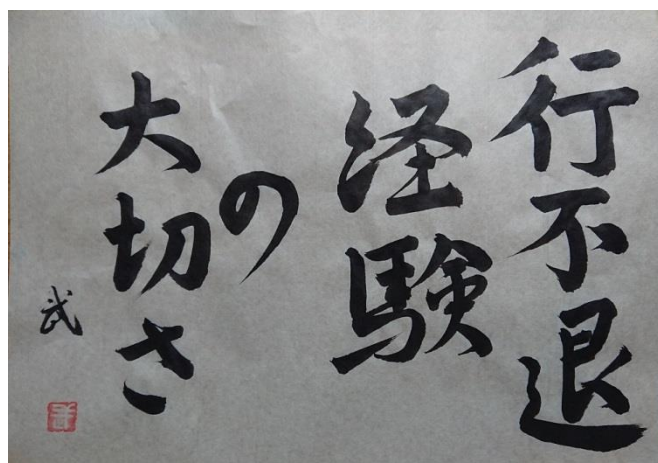 行不退
経験
の
大切さ
武